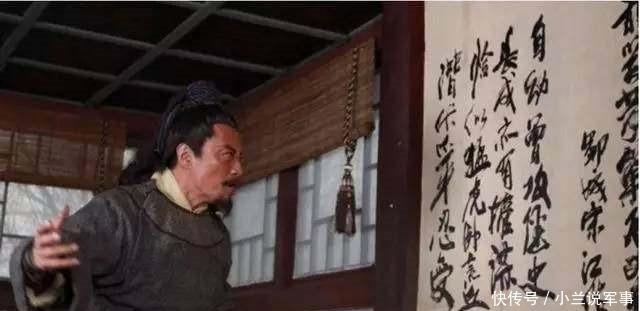 鄆城宋江
自幼曾攻经史
长成亦有權謀
恰似猛虎卧荒丘
潜伏爪牙忍受
快传号／小兰说军事